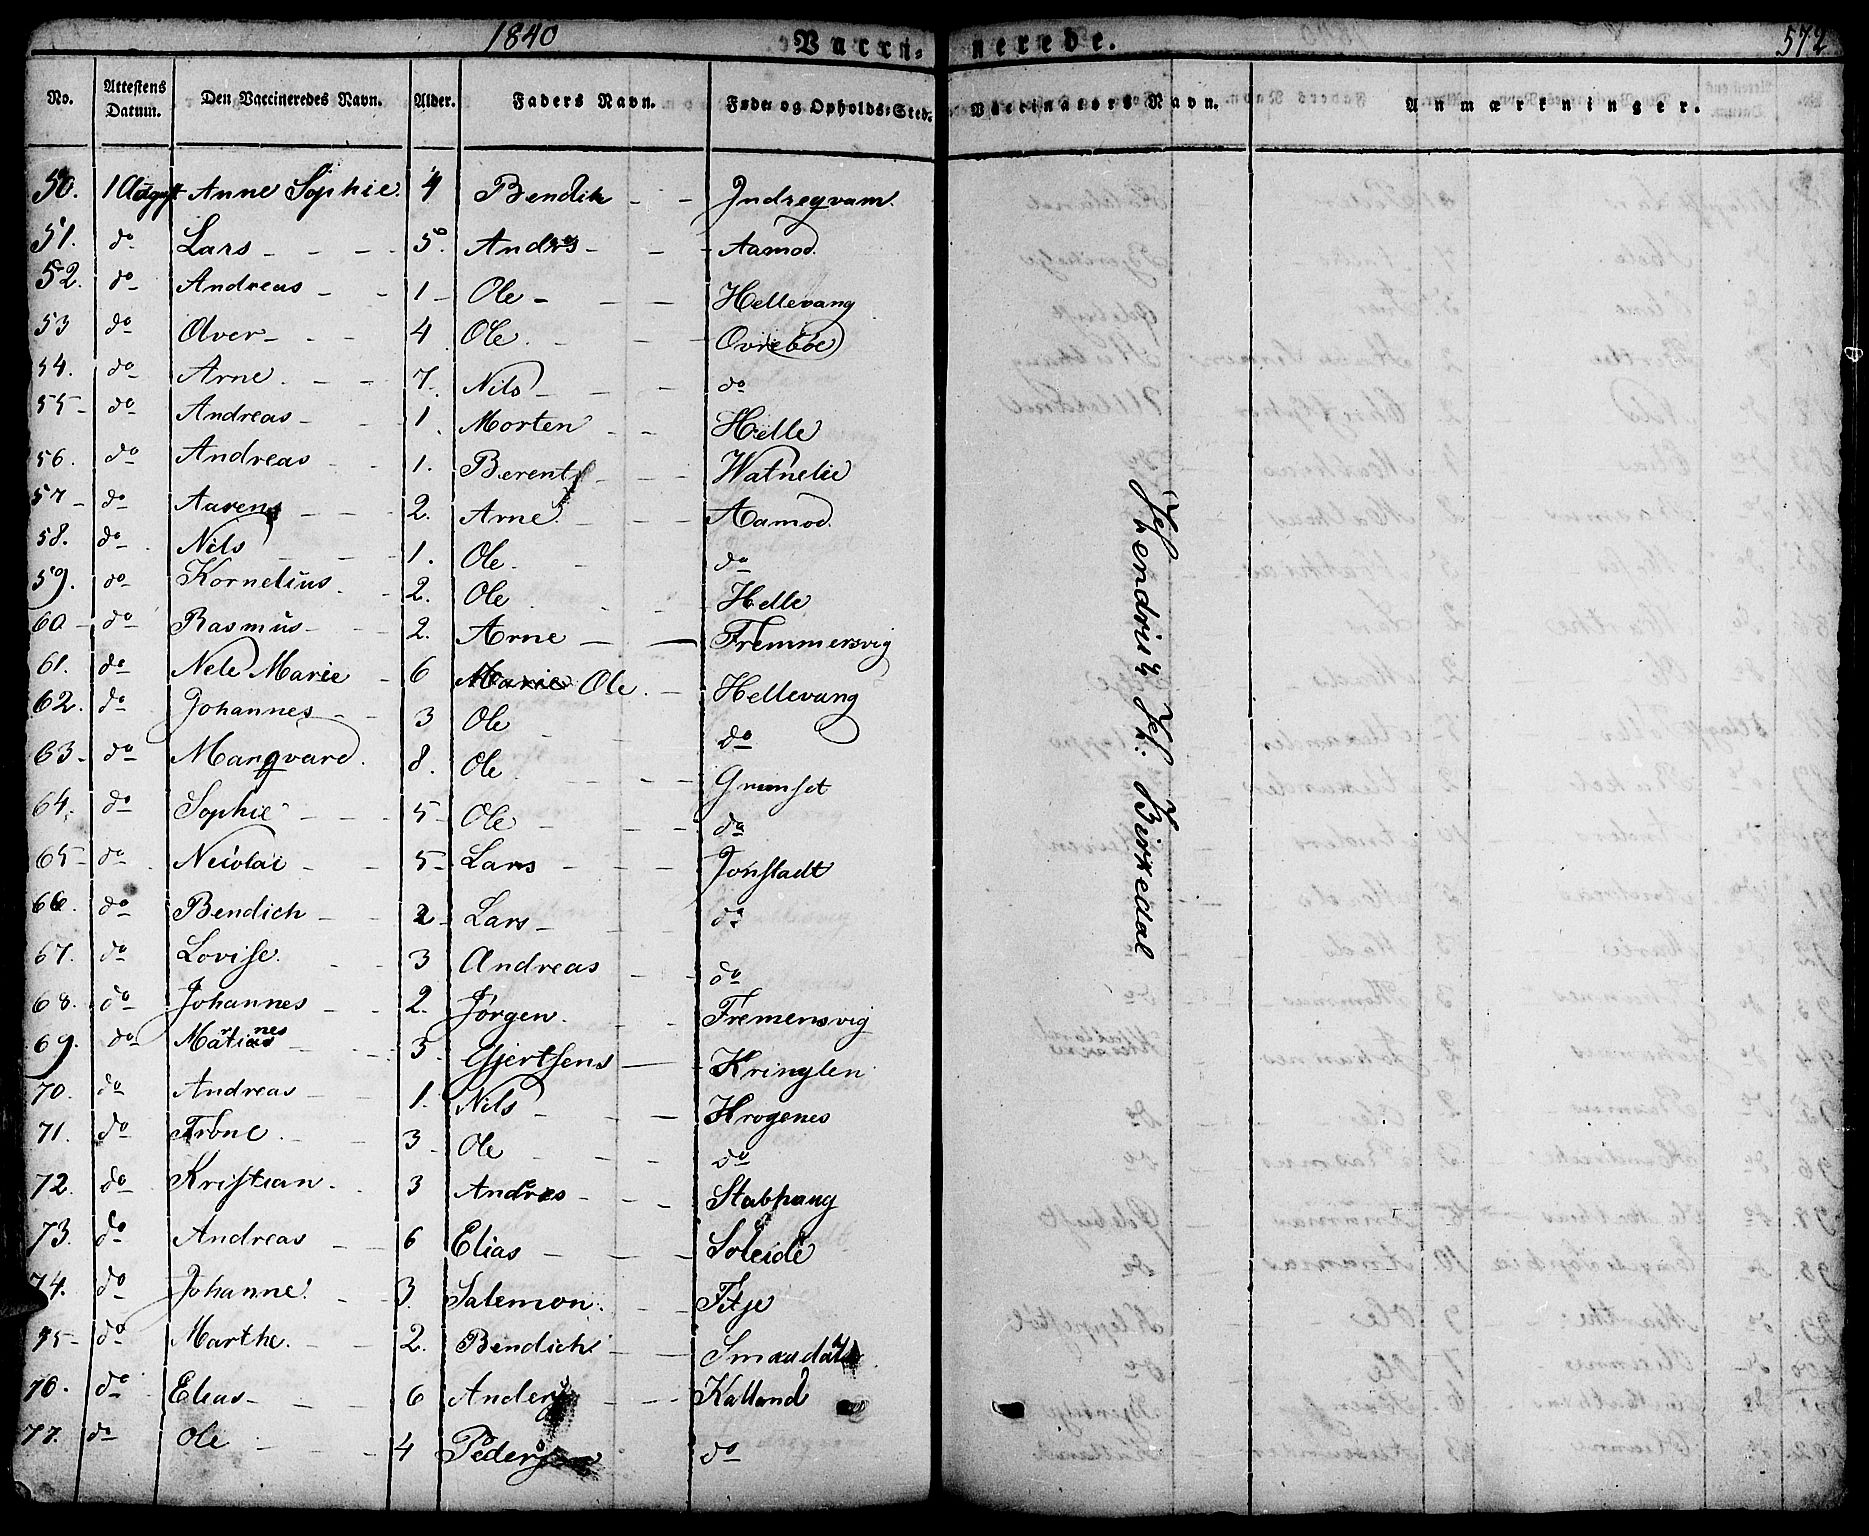 1840
Vacci-
nerede.
572
No. Attestens Datum. Den Vaccineredes Navn. Alder. Faders Navn. Føde og Opholds-Sted. Vaccinateurs Navn. Anmærkninger.
50. 1 August Anne Sophie. 4 Bendik - - Indregvam.
51. do Lars - - - - 5. Anders - - - Aamod.
52. do Andreas - - 1 - Ole - - - Hellevang
53 do Olver - - - 4 Ole. - - - Ovrebøe
54. do Arne. - - - 7. Nils - - - do
55 - do Andreas - - 1. Morten - - Helle
56. do Andreas - - 1. Berent - - Watnelie
57 - do Aarens - - - 2. Arne. - - - Aamod.
58. do Nils - - - 1. Ole. - - - do
59. do Kornelius. - 2. Ole - - - Helle
60 - do Rasmus - - - 2. Arne - - Fremmersvig
61. do Nele Marie - 6 Marie Ole. - Hellevang
62. do Johannes - - 3 Ole - - - do
63 - do Marqvard. 8. Ole - - - Grimset
64. do Sophie - - - 5 - Ole - - - do
65 - do Nicolai - - 5 - Lars - - - Jonstadt
66. do Bendich - - 2 - Lars - - - do
67. do Lovise. - - 3 Andreas - - do
68. do Johannes - - 2. Jørgen. - - Fremensvig
69. do Martines - - 5 Gjertsens - Kringlen
70. do Andreas - - 1. Nils - - - Krogenes
71. do Trone. - - 3 - Ole - - - do
72. do Kristian. - 3 Andres - - - Stabhaug
73. do Andreas - - 6 Elias - - - Soleide
74. do Johanne. - - 3. Salemon. - - Fitje
75 - do Marthe. - - 2. Bendich - -
76. do Elias - - - 6 Anders - - Kalland
77. do Ole - - - 4 Peder - - do
Hendrich Birkedal